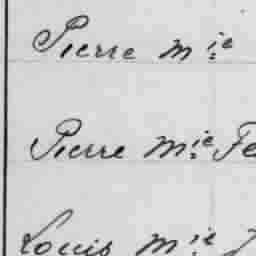 Pierre mie
Pierre mie Fe
Louis mie